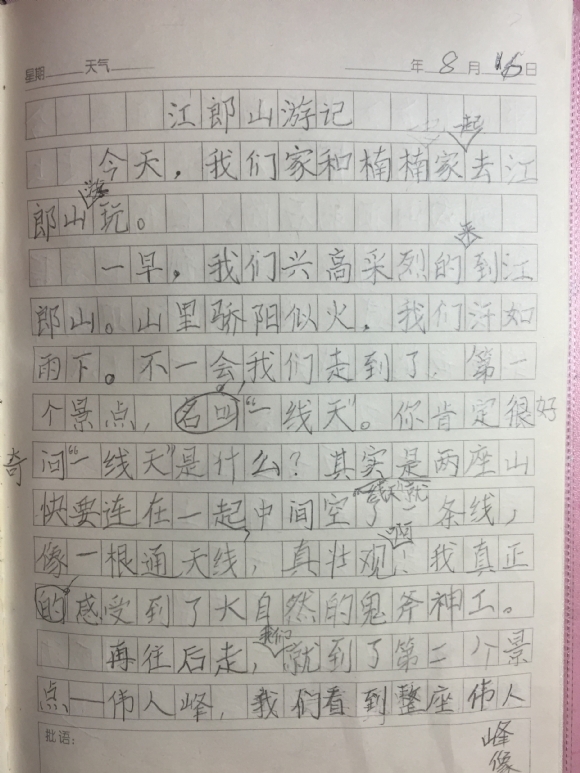 星期 天气 年8月16日
江郎山游记
一起
今天，我们家和楠楠家去江
游
郎山玩。
来
一早，我们兴高采烈的到江
郎山。山里骄阳似火，我们汗如
雨下。不一会，我们走到了，第一
个景点，名叫“一线天”。你肯定很好
奇问“一线天”是什么？其实是两座山
线天就
快要连在一起，中间空了一条线，
啊
像一根通天线，真壮观！我真正
的感受到了大自然的鬼斧神工。
我们
再往后走，就到了第二个景
点——伟人峰，我们看到整座伟人
批语：
峰
像